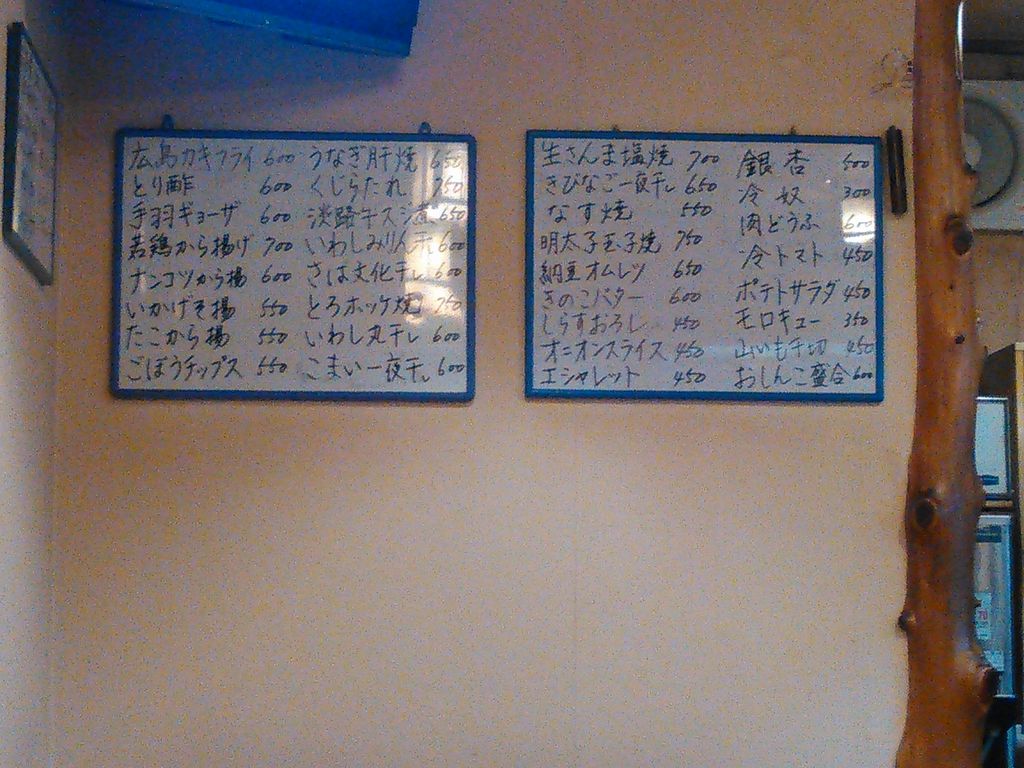 広島カキフライ 600
とり酢 600
手羽ギョーザ 600
若鶏から揚げ 700
ナンコツから揚 600
いかげそ揚 550
たこから揚 550
ごぼうチップス 550
うなぎ肝焼 650
くじらたれ 750
淡路キス 650
いわしみりん干 600
さば文化干し 600
とろホッケ焼 750
いわし丸干し 600
こまい一夜干し 600
生さんま塩焼 700
きびなご一夜干し 650
なす焼 550
明太子玉子焼 750
納豆オムレツ 650
きのこバター 600
しらすおろし 450
オニオンスライス 450
エシャレット 450
銀杏 500
冷奴 300
肉どうふ 600
冷トマト 450
ポテトサラダ 450
モロキュー 350
山いも千切 450
おしんこ盛合 600